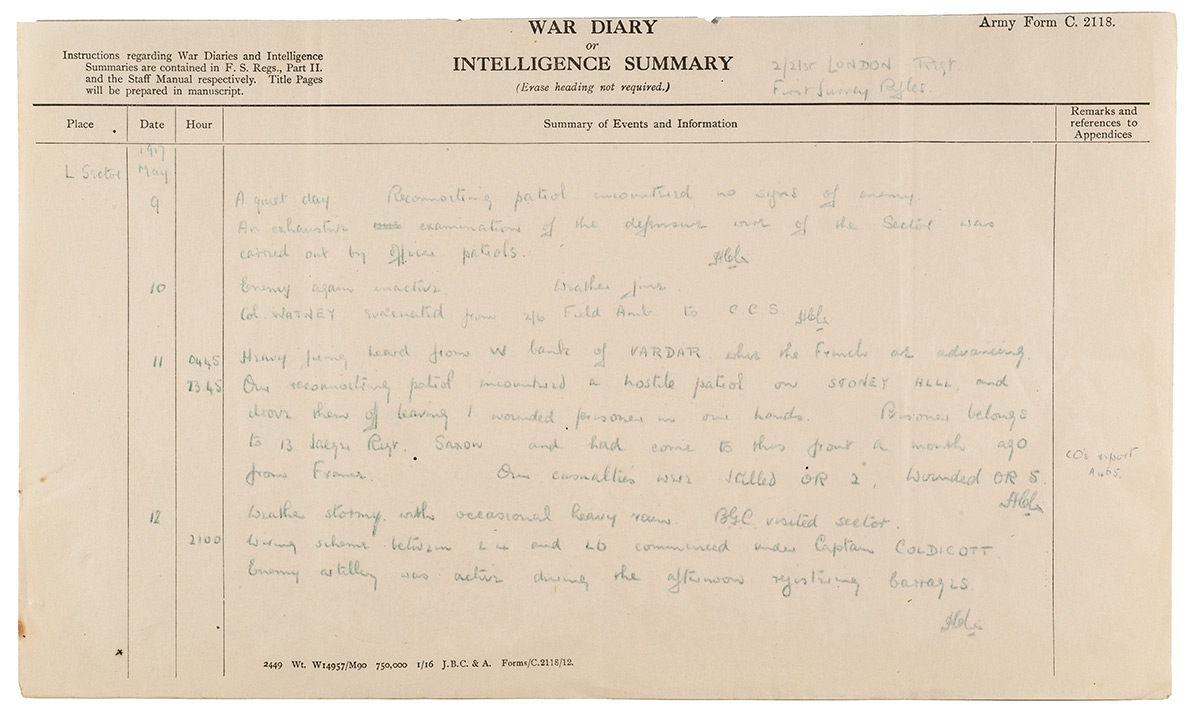 WAR DIARY
or
INTELLIGENCE SUMMARY
(Erase heading not required.)
Army Form C. 2118.
Instructions regarding War Diaries and Intelligence
Summaries are contained in F. S. Regs., Part II.
and the Staff Manual respectively. Title Pages
will be prepared in manuscript.
2/21st LONDON Regt.
First Surrey Rifles.
Place Date Hour Summary of Events and Information Remarks and references to Appendices
1917
L Sector May
9 A quiet day Reconnoitring patrol encountered no signs of enemy.
An exhaustive examination of the defensive wire of the Sector was
carried out by officer patrols.
10 Enemy again inactive Weather fine.
Col. WATNEY evacuated from 2/6 Field Amb to C.C.S.
11 0445 Heavy firing heard from W bank of VARDAR where the French are advancing.
23.45 Our reconnoitring patrol encountered a hostile patrol on STONEY HILL, and
drove them off leaving 1 wounded prisoner in our hands. Prisoner belongs
to 13 Jaeger Regt. Saxon and had come to this front a month ago
from France. Our casualties were killed OR 2, Wounded OR 5.
COs report
12 Weather stormy with occasional heavy rain. BGC visited sector.
2100 Wiring scheme between L4 and L6 commenced under Captain COLDICOTT.
Enemy artillery was active during the afternoon registering barrages.
2449 Wt. W14957/M90 750,000 1/16 J.B.C. & A. Forms/C.2118/12.